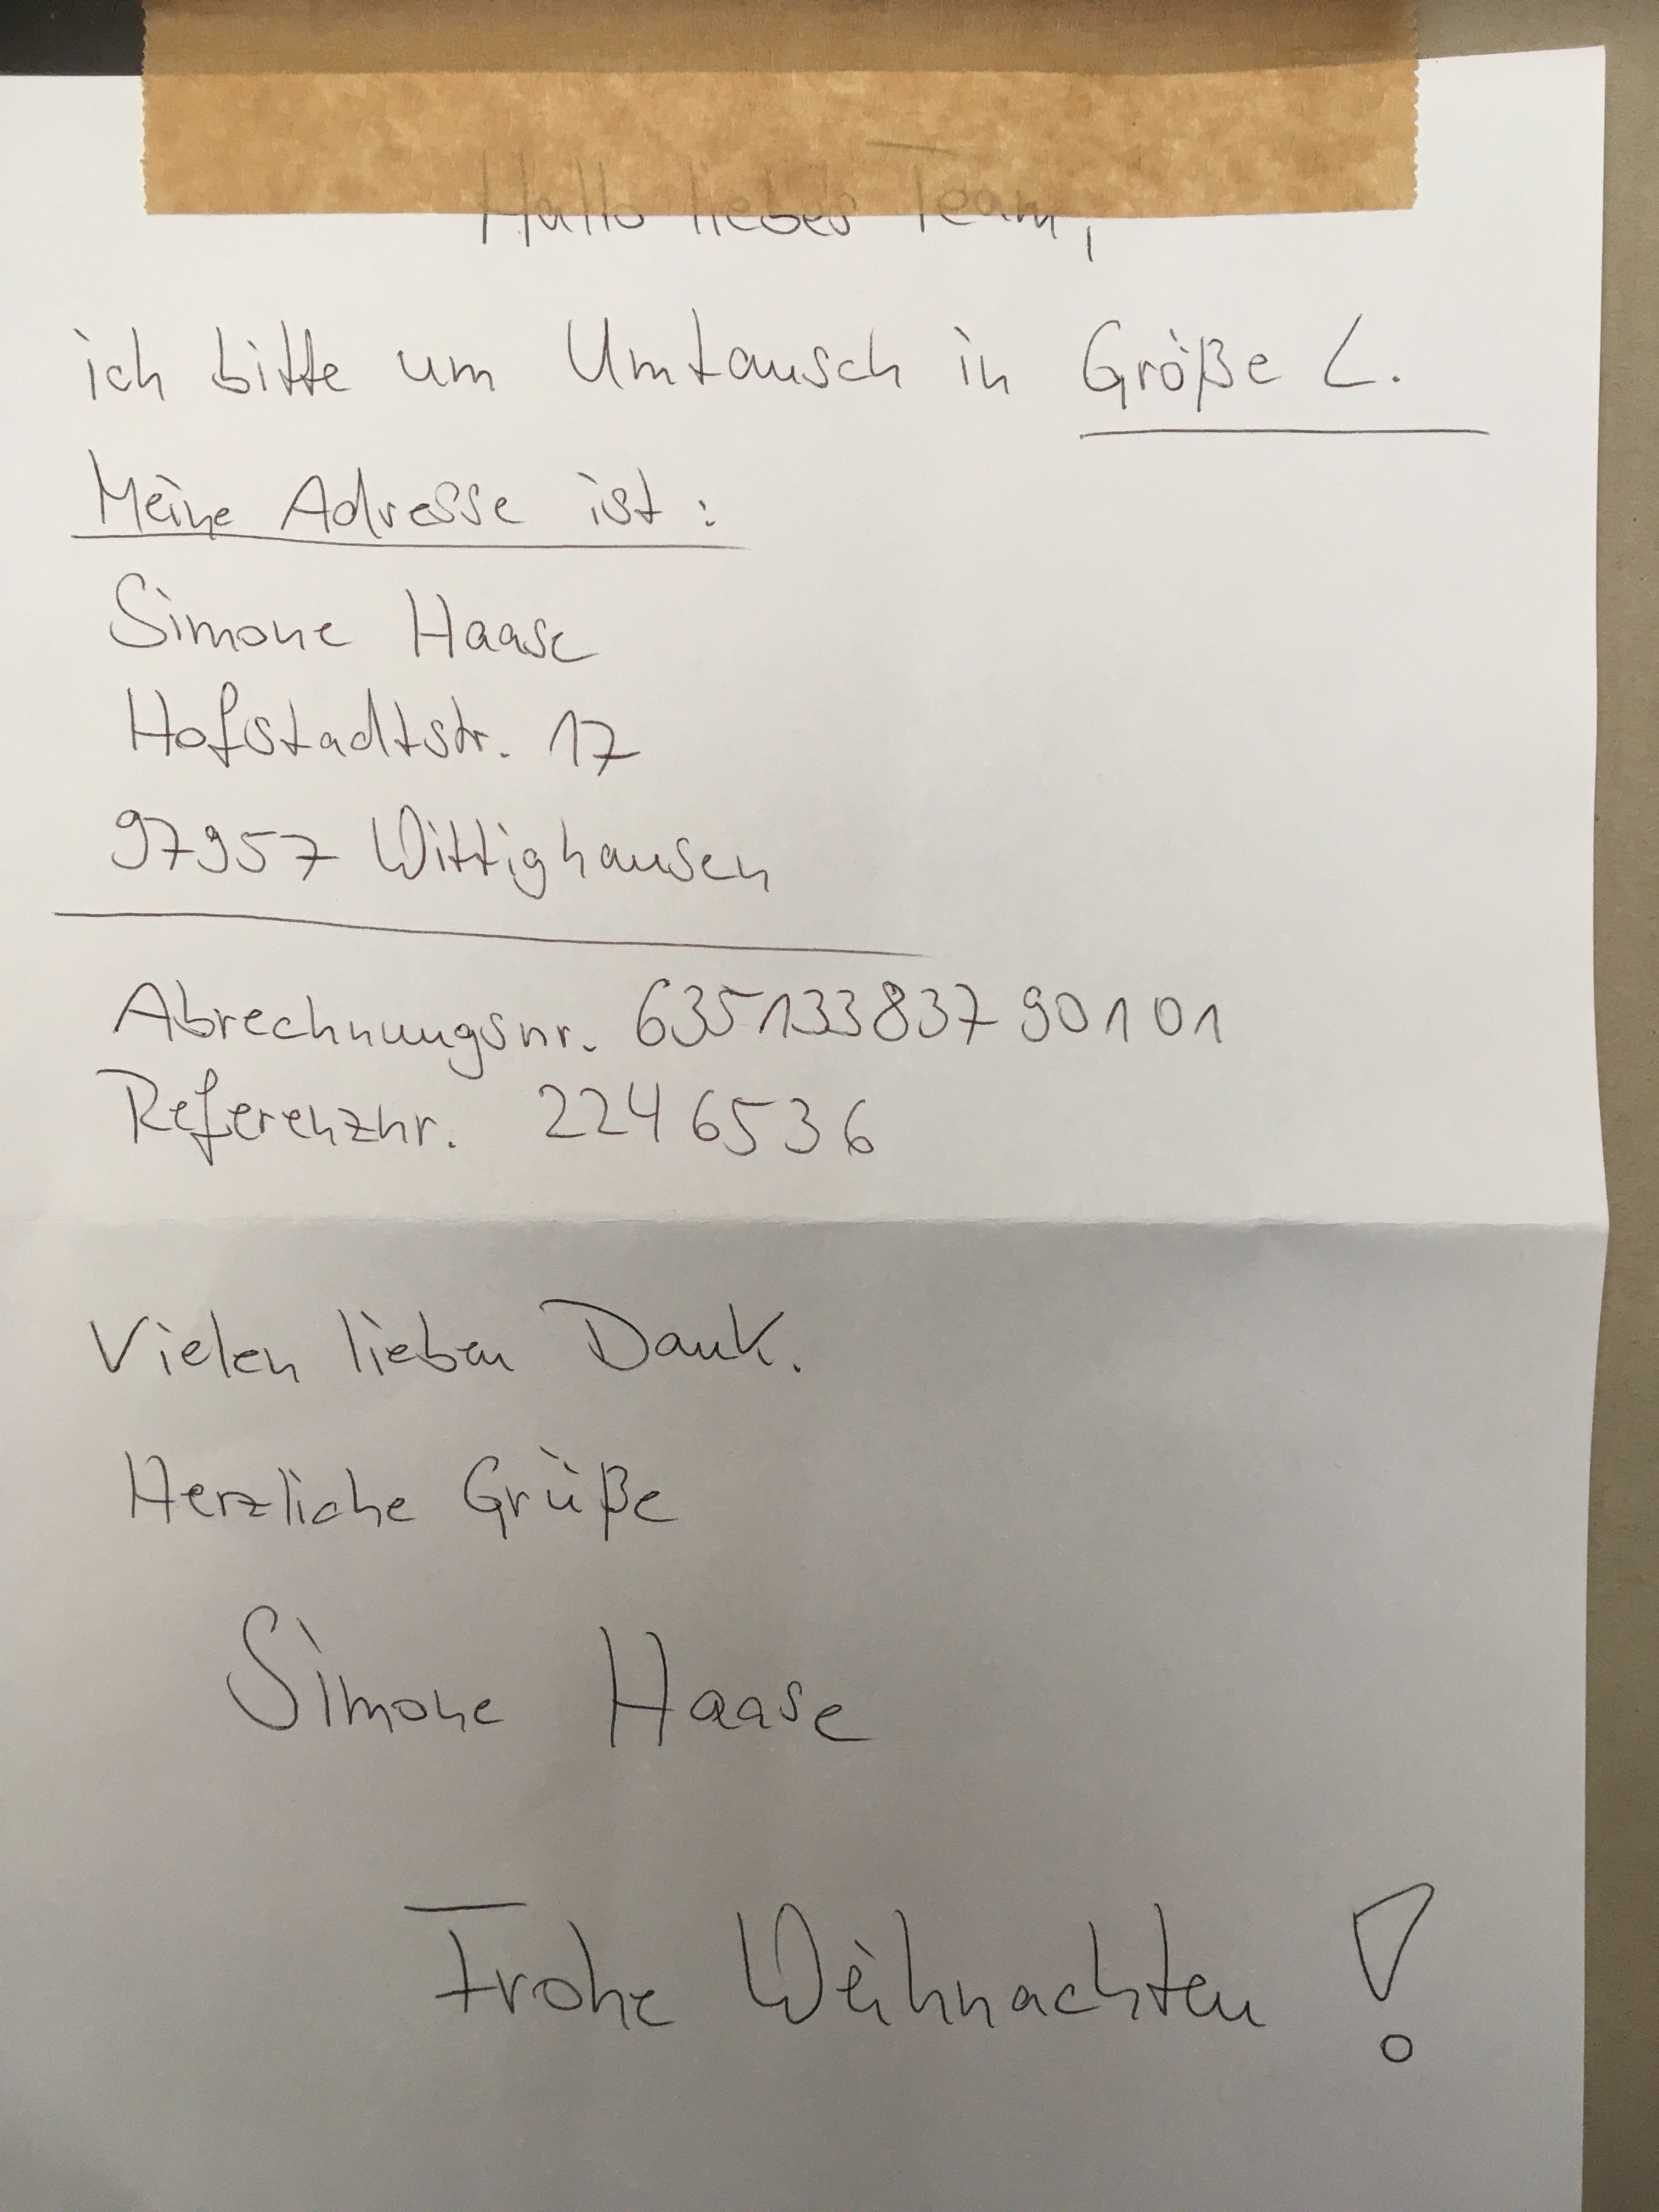 Hallo liebes Team,
ich bitte um Umtausch in Größe L.
Meine Adresse ist:
Simone Haase
Hofstadtstr. 17
97957 Wittighausen
Abrechnungsnr. 63513383790101
Referenznr. 2246536
Vielen lieben Dank.
Herzliche Grüße
Simone Haase
Frohe Weihnachten!